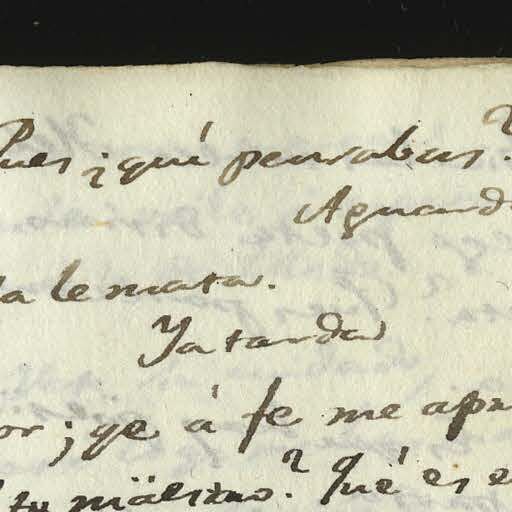 Pues ¿qué pensabas?
Aguard
la le mata.
Ya tarda
or; qe á fe me apu
tu máestro? Qué es e